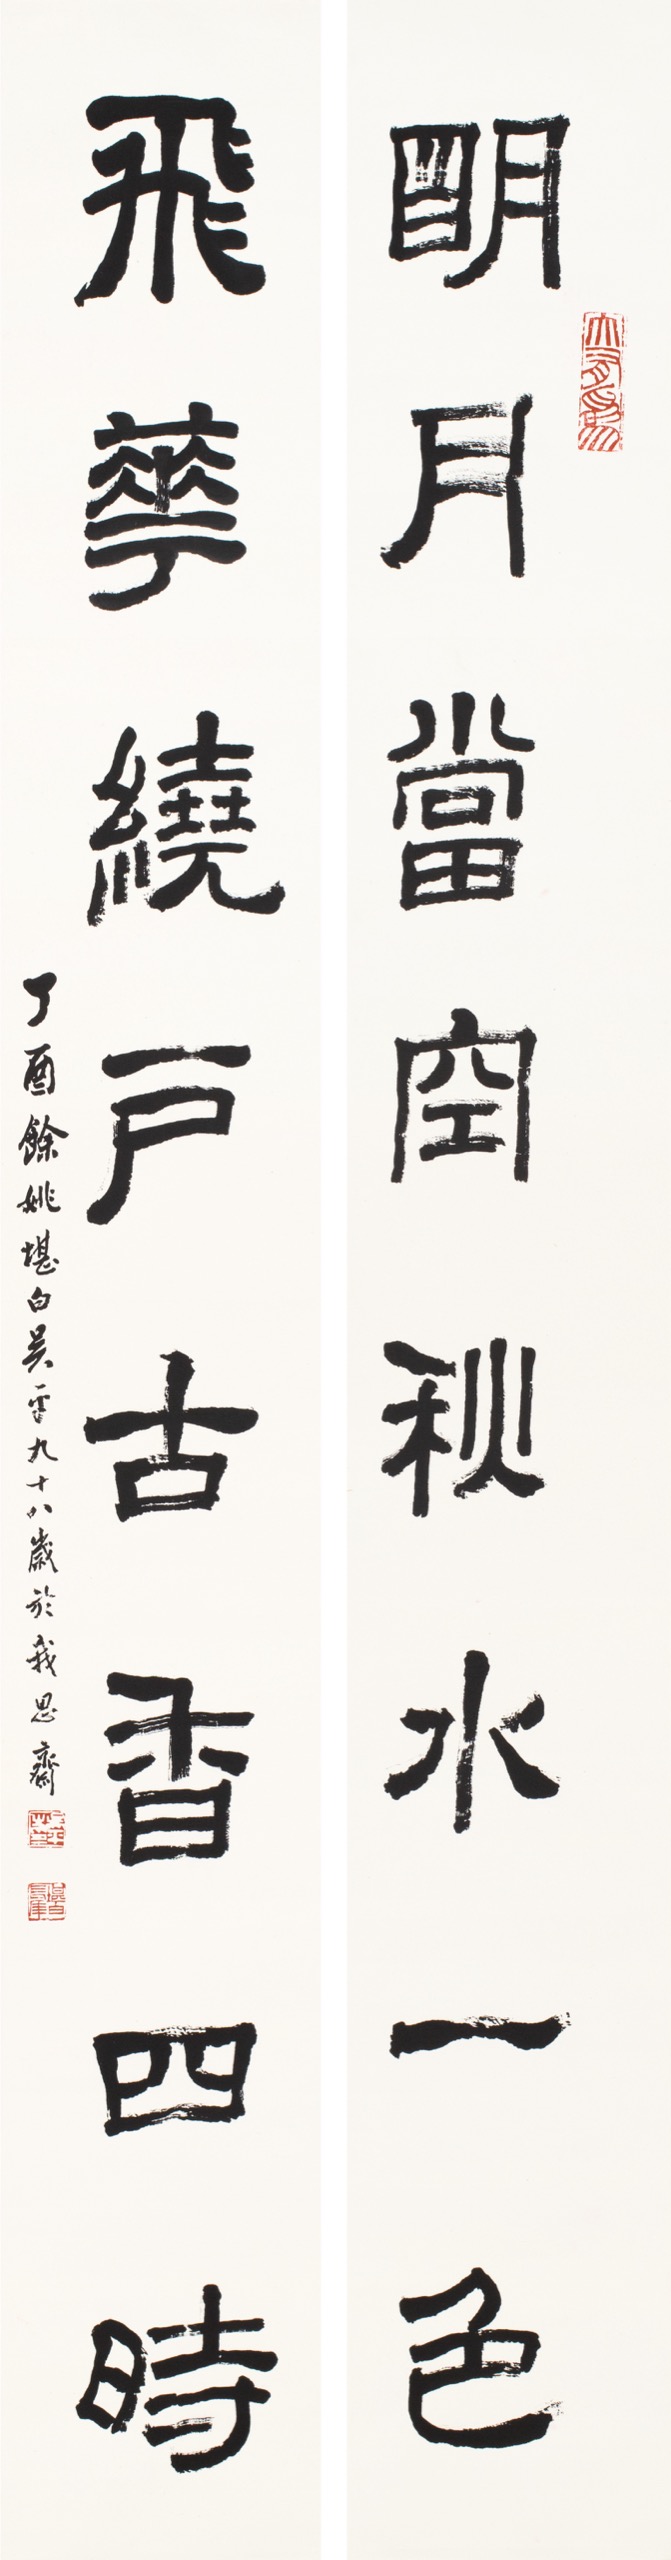 明月當空秋水一色
飛華繞戶古香四時
丁酉餘姚堪白吳平九十八歲於我思齋